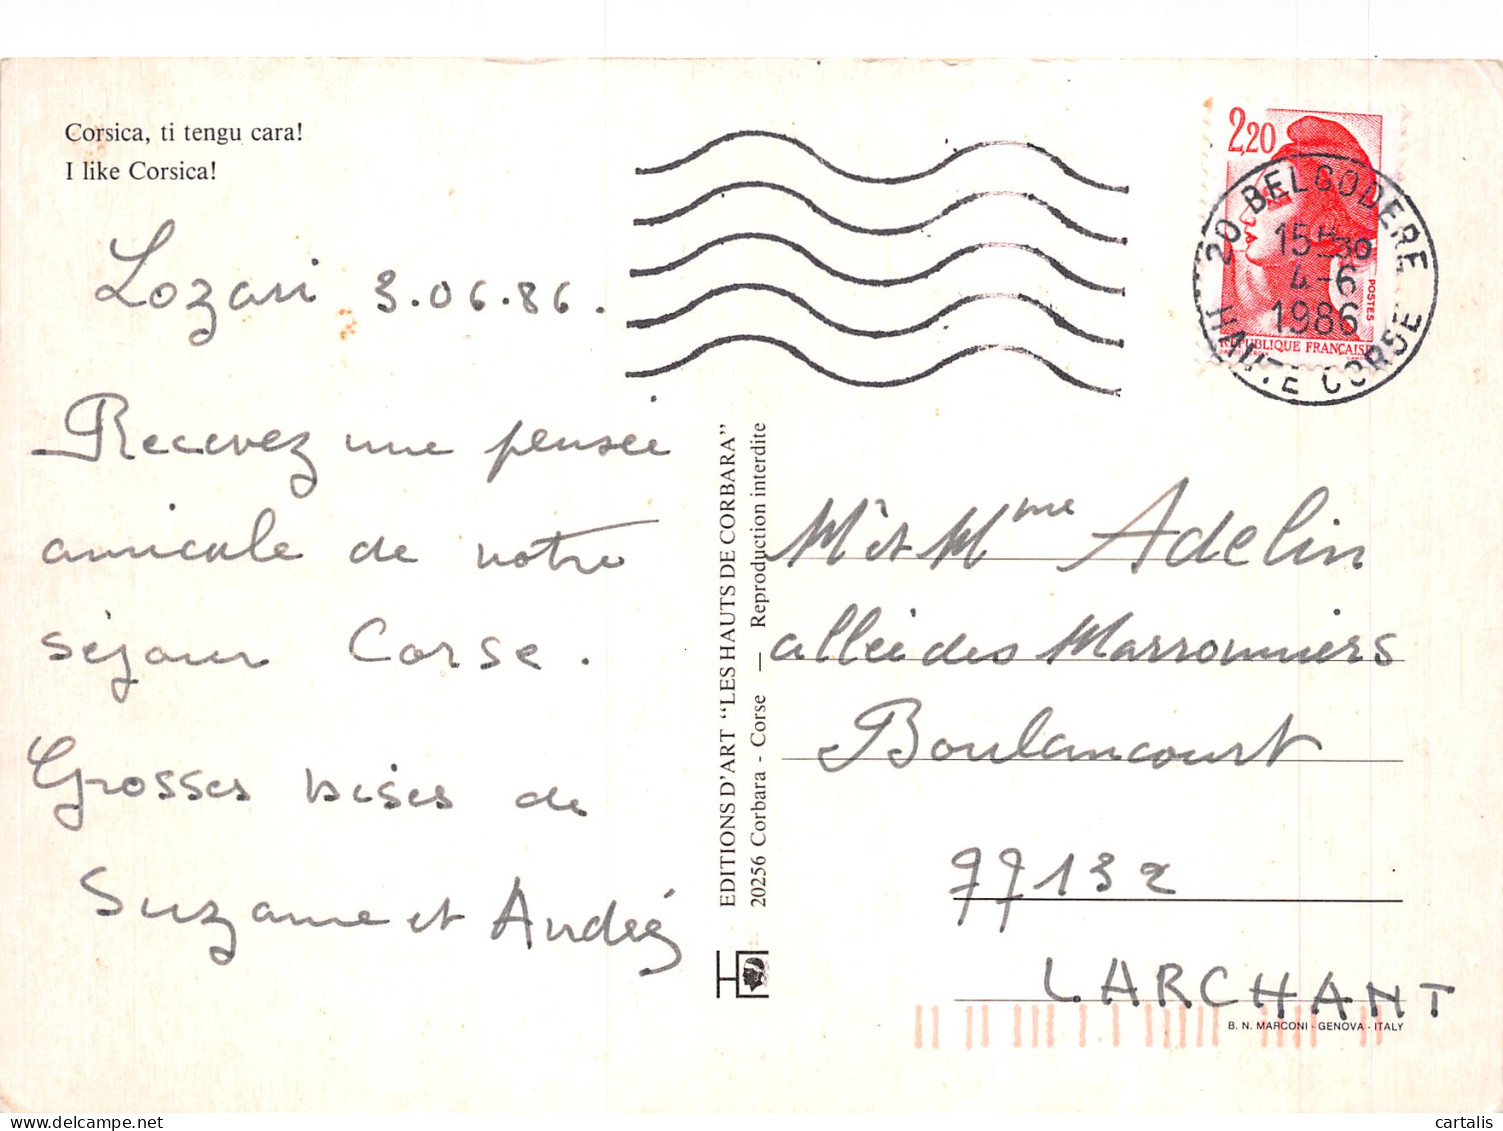 Corsica, ti tengu cara!
I like Corsica!
Lozari 3.06.86.
Recevez une pensée
amicale de notre
séjour Corse.
Grosses bises de
Suzanne et André
EDITIONS D'ART "LES HAUTS DE CORBARA"
20256 Corbara - Corse — Reproduction interdite
2,20
POSTES
REPUBLIQUE FRANÇAISE
20 BELGODERE
15H30
4-6
1986
HAUTE CORSE
Mr et Mme Adelin
allée des Marronniers
Boulancourt
77132
LARCHANT
B. N. MARCONI - GENOVA - ITALY
cartalis